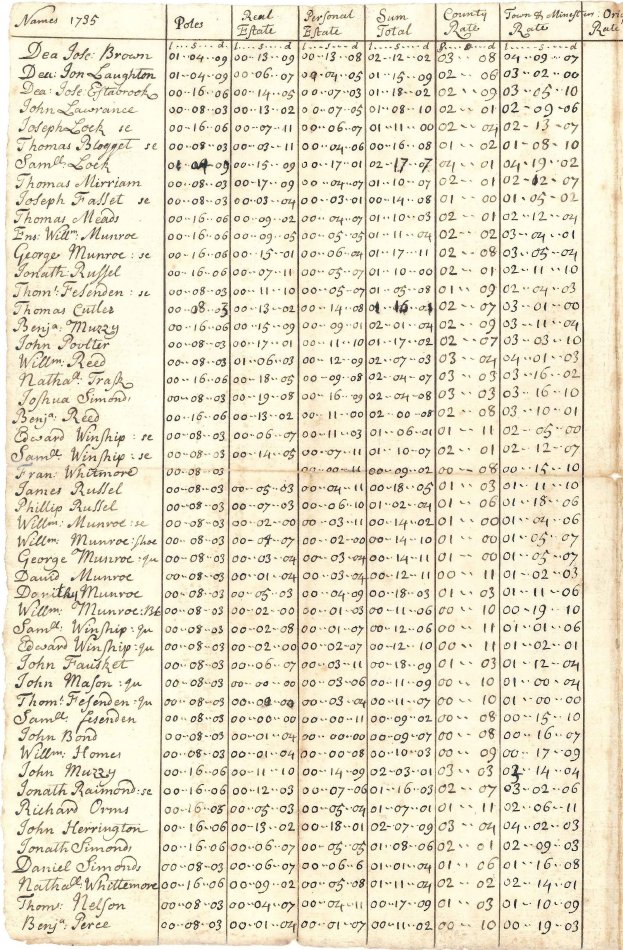 Names 1735 Poles Real Estate Personal Estate Sum Total County Rate Town & Minesters Rate Rate
l...s...d l...s...d l...s...d l...s...d s...d l...s...d
Dea Jose: Brown 01..04..09 00..13..09 00..13..08 02..12..02 03..08 04..09..07
Dea: Jon Laughton 01..04..09 00..06..07 00..04..05 01..15..09 02..06 03..02..00
Dea: Jose Estabrook 00..16..06 00..14..05 00..07..03 01..18..02 02..09 03..05..10
John Lawrance 00..08..03 00..13..02 00..07..05 01..08..10 02..01 02..09..06
Joseph Lock se 00..16..06 00..07..11 00..06..07 01..11..00 02..04 02..13..07
Thomas Blogget se 00..08..03 00..03..11 00..04..06 00..16..08 01..02 01..08..10
Samll Lock 01..04..09 00..15..09 00..17..01 02..17..07 04..01 04..19..02
Thomas Mirriam 00..08..03 00..17..09 00..04..07 01..10..07 02..01 02..12..07
Joseph Fasset se 00..08..03 00..03..04 00..03..01 00..14..08 01..00 01..05..02
Thomas Meads 00..16..06 00..09..02 00..04..07 01..10..03 02..01 02..12..04
Ens: Willm: Munroe 00..16..06 00..09..05 00..05..05 01..11..04 02..02 03..04..01
George Munroe: se 00..16..06 00..15..01 00..06..04 01..17..11 02..08 03..05..04
Jonath Russel 00..16..06 00..07..11 00..05..07 01..10..00 02..01 02..11..10
Thom: Fesenden: se 00..08..03 00..11..10 00..05..07 01..05..08 01..09 02..04..03
Thomas Cutler 00..08..03 00..13..02 00..14..08 01..16..01 02..07 03..01..00
Benja: Muzzy 00..16..06 00..15..09 00..09..01 02..01..04 02..09 03..11..04
John Poulter 00..08..03 00..17..01 00..11..10 01..17..02 02..07 03..03..10
Willm: Reed 00..08..03 01..06..03 00..12..09 02..07..03 03..04 04..01..03
Nathall: Trask 00..16..06 00..18..05 00..09..08 02..04..07 03..03 03..16..02
Joshua Simonds 00..08..03 00..19..08 00..16..09 02..04..08 03..03 03..16..10
Benja: Reed 00..16..06 00..13..02 00..11..00 02..00..08 02..08 03..10..01
Edward Winship: se 00..08..03 00..06..07 00..11..03 01..06..01 01..11 02..05..00
Samll: Winship: se 00..08..03 00..14..05 00..07..11 01..10..07 02..01 02..12..07
Fran: Whitmore 00..08..03 00..00..11 00..09..02 00..08 00..15..10
James Russel 00..08..03 00..05..03 00..04..11 00..18..05 01..03 01..11..10
Phillip Russel 00..08..03 00..07..03 00..06..10 01..02..04 01..06 01..18..06
Willm: Munroe: se 00..08..03 00..02..00 00..03..11 00..14..02 01..00 01..04..06
Willm: Munroe: Shoe 00..08..03 00..04..07 00..02..00 00..14..10 01..00 01..05..07
George Munroe: qu 00..08..03 00..03..04 00..03..04 00..14..11 01..00 01..05..07
David Munroe 00..08..03 00..01..04 00..03..04 00..12..11 00..11 01..02..03
Munroe 00..08..03 00..05..03 00..04..09 00..18..03 01..03 01..11..06
Willm: Munroe: 00..08..03 00..02..00 00..01..03 00..11..06 00..10 00..19..10
Samll: Winship: qu 00..08..03 00..02..08 00..01..07 00..12..06 00..11 01..01..06
Edward Winship: qu 00..08..03 00..02..00 00..02..07 00..12..10 00..11 01..02..01
John Fausket 00..08..03 00..06..07 00..03..11 00..18..09 01..03 01..12..04
John Mason: qu 00..08..03 00..00..00 00..03..06 00..11..09 00..10 01..00..04
Thom: Fesenden: qu 00..08..03 00..00..00 00..03..04 00..11..07 00..10 01..00..00
Samll: fesenden 00..08..03 00..00..00 00..00..11 00..09..02 00..08 00..15..10
John Bond 00..08..03 00..01..04 00..00..00 00..09..07 00..08 00..16..07
Willm: Homes 00..08..03 00..01..04 00..00..08 00..10..03 00..09 00..17..09
John Muzzy 00..16..06 00..11..10 00..14..09 02..03..01 03..03 03..14..04
Jonath Raimond: se 00..16..06 00..12..03 00..07..06 01..16..03 02..07 03..02..06
Richard Orms 00..16..08 00..05..03 00..05..04 01..07..01 01..11 02..06..11
John Herrington 00..16..06 00..13..02 00..18..01 02..07..09 03..04 04..02..03
Jonath Simonds 00..16..06 00..06..07 00..05..05 01..08..06 02..01 02..09..03
Daniel Simonds 00..08..03 00..06..07 00..06..6 01..01..04 01..06 01..16..08
Nathall: Whittemore 00..16..06 00..09..02 00..05..08 01..11..04 02..02 02..14..01
Thom: Nelson 00..08..03 00..04..07 00..04..11 00..17..09 01..03 01..10..09
Benja: Perce 00..08..03 00..01..04 00..01..07 00..11..02 00..10 00..19..03